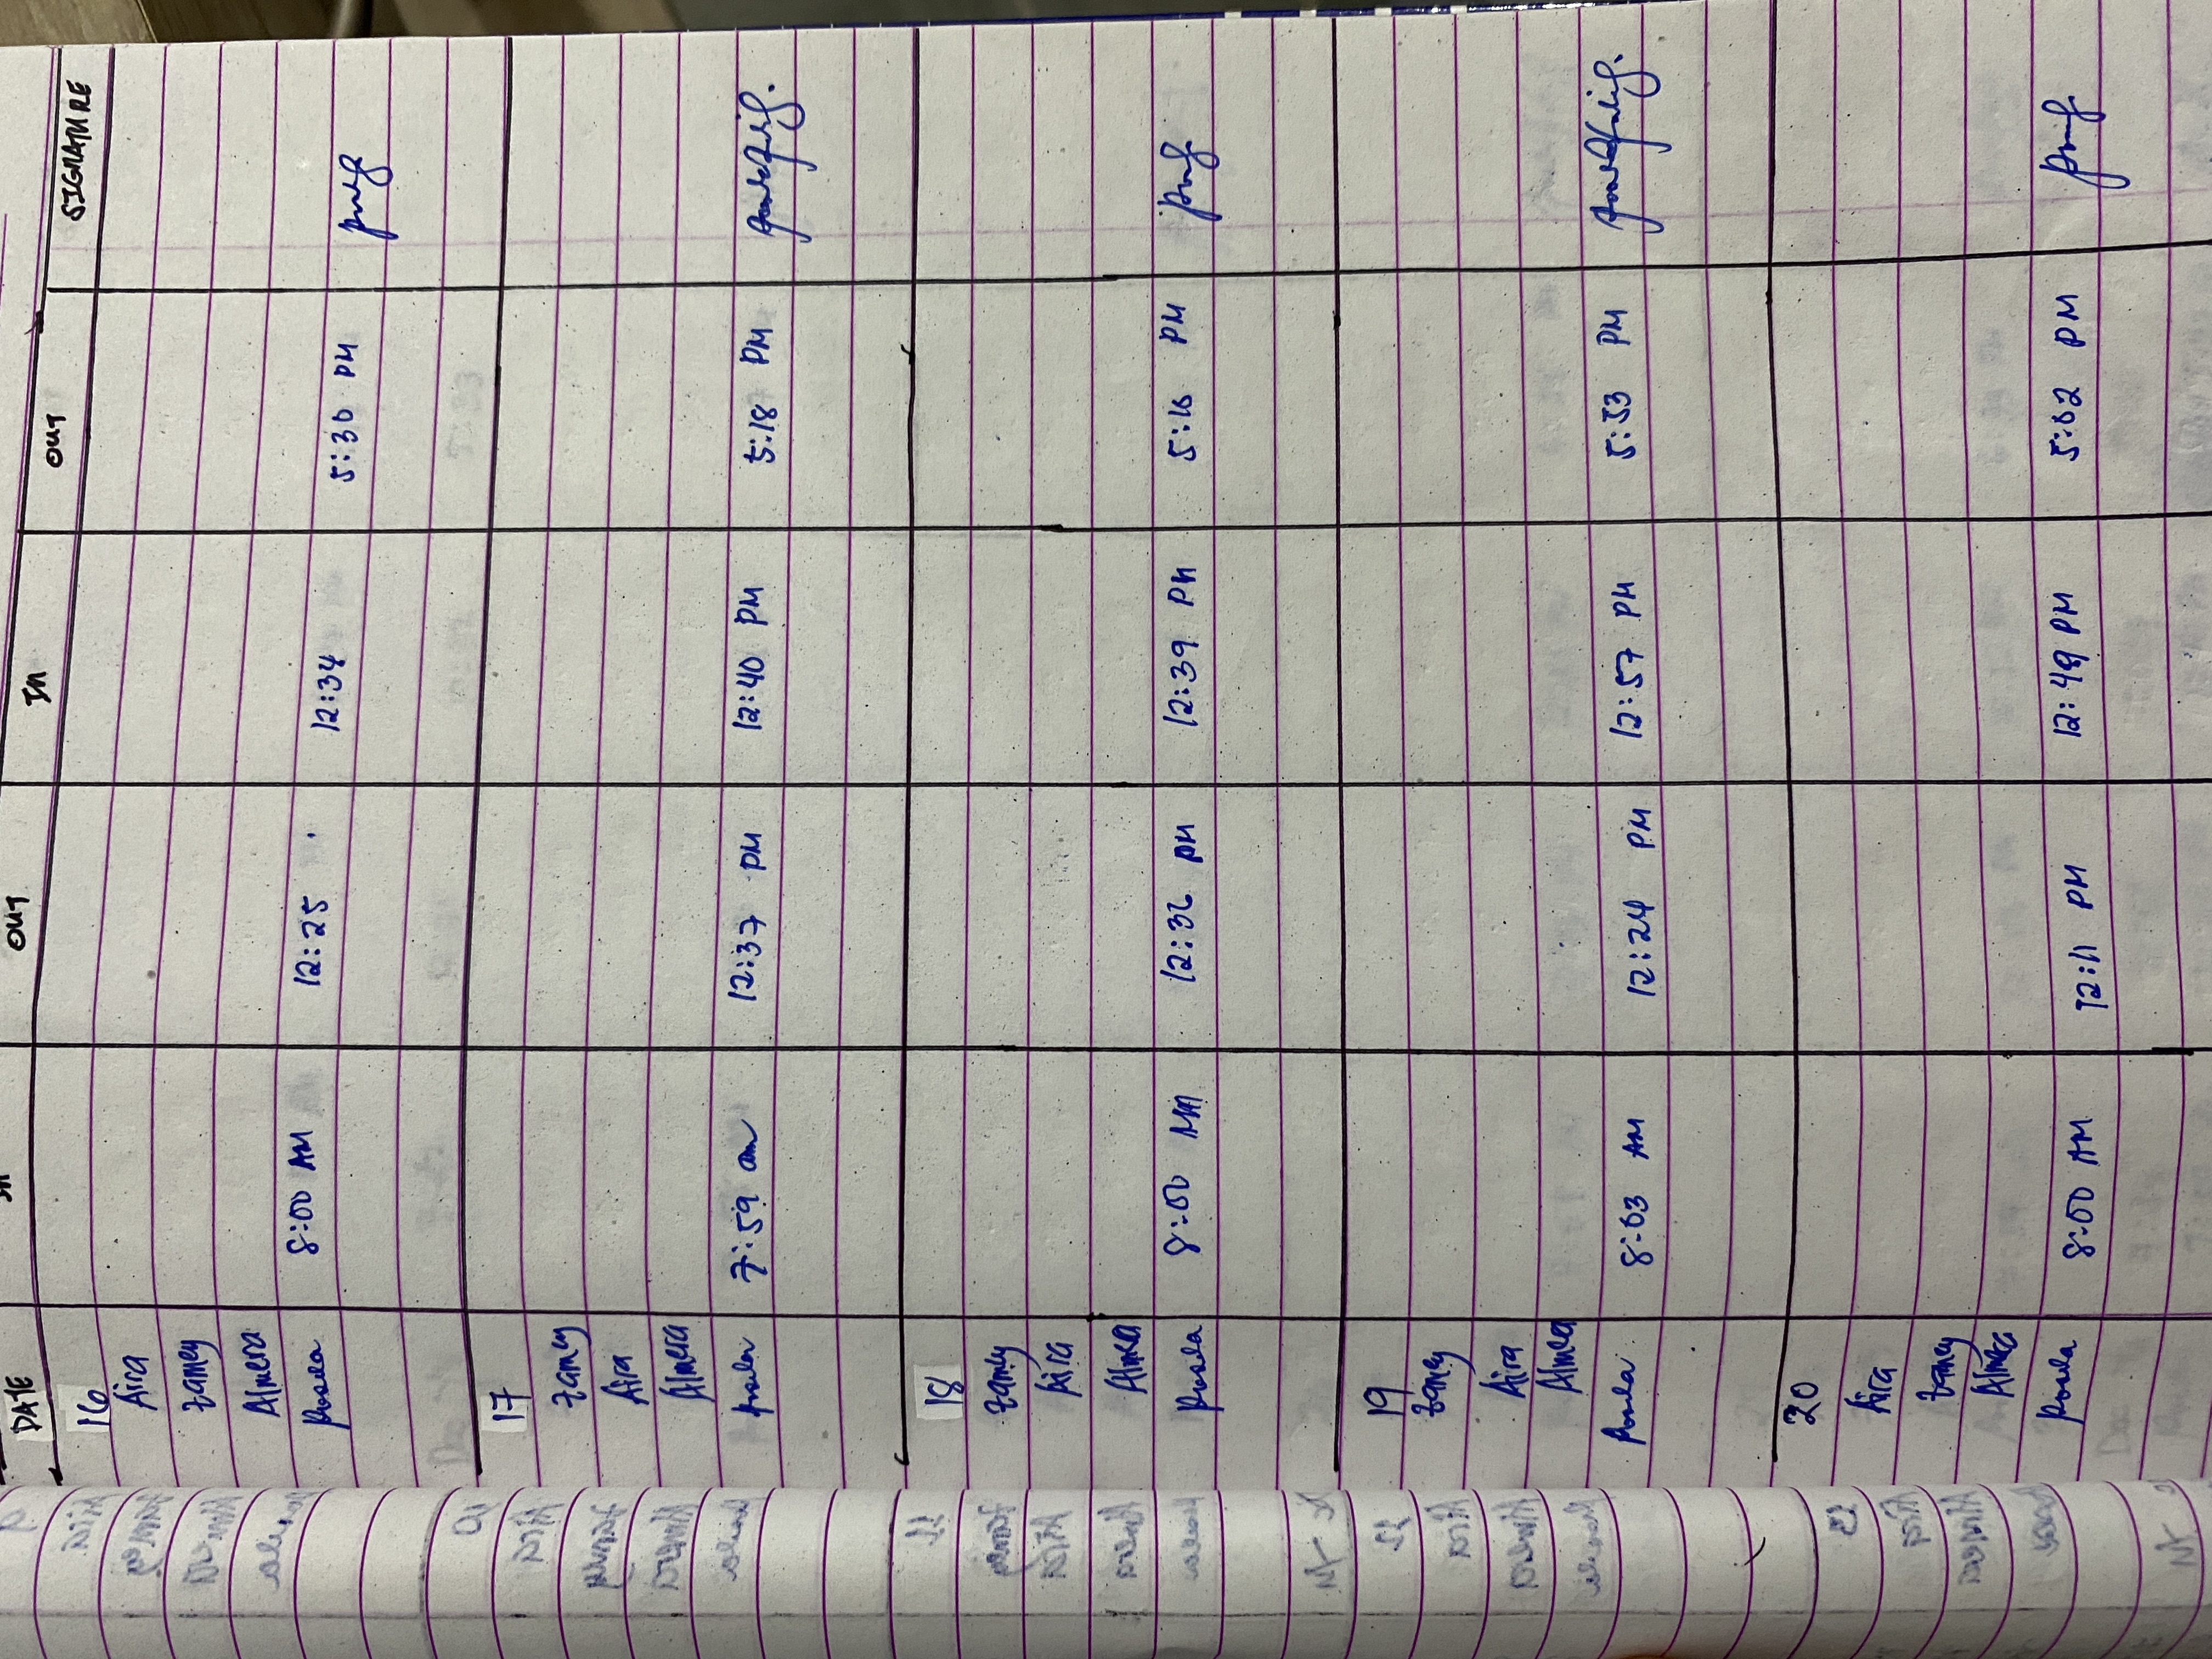 DATE IN OUT IN OUT SIGNATURE
16
Aira
Zamey
Almera
Paala 8:00 AM 12:25 12:34 5:30 PM
17
Zamey
Aira
Almera
Paala 7:59 am 12:37 PM 12:40 PM 5:18 PM
18
Zamey
Aira
Almera
Paala 8:00 AM 12:36 PM 12:39 PM 5:16 PM
19
Zamey
Aira
Almera
Paala 8:03 AM 12:24 PM 12:57 PM 5:53 PM
20
Aira
Zamey
Almera
Paala 8:00 AM 12:11 PM 12:49 PM 5:02 PM